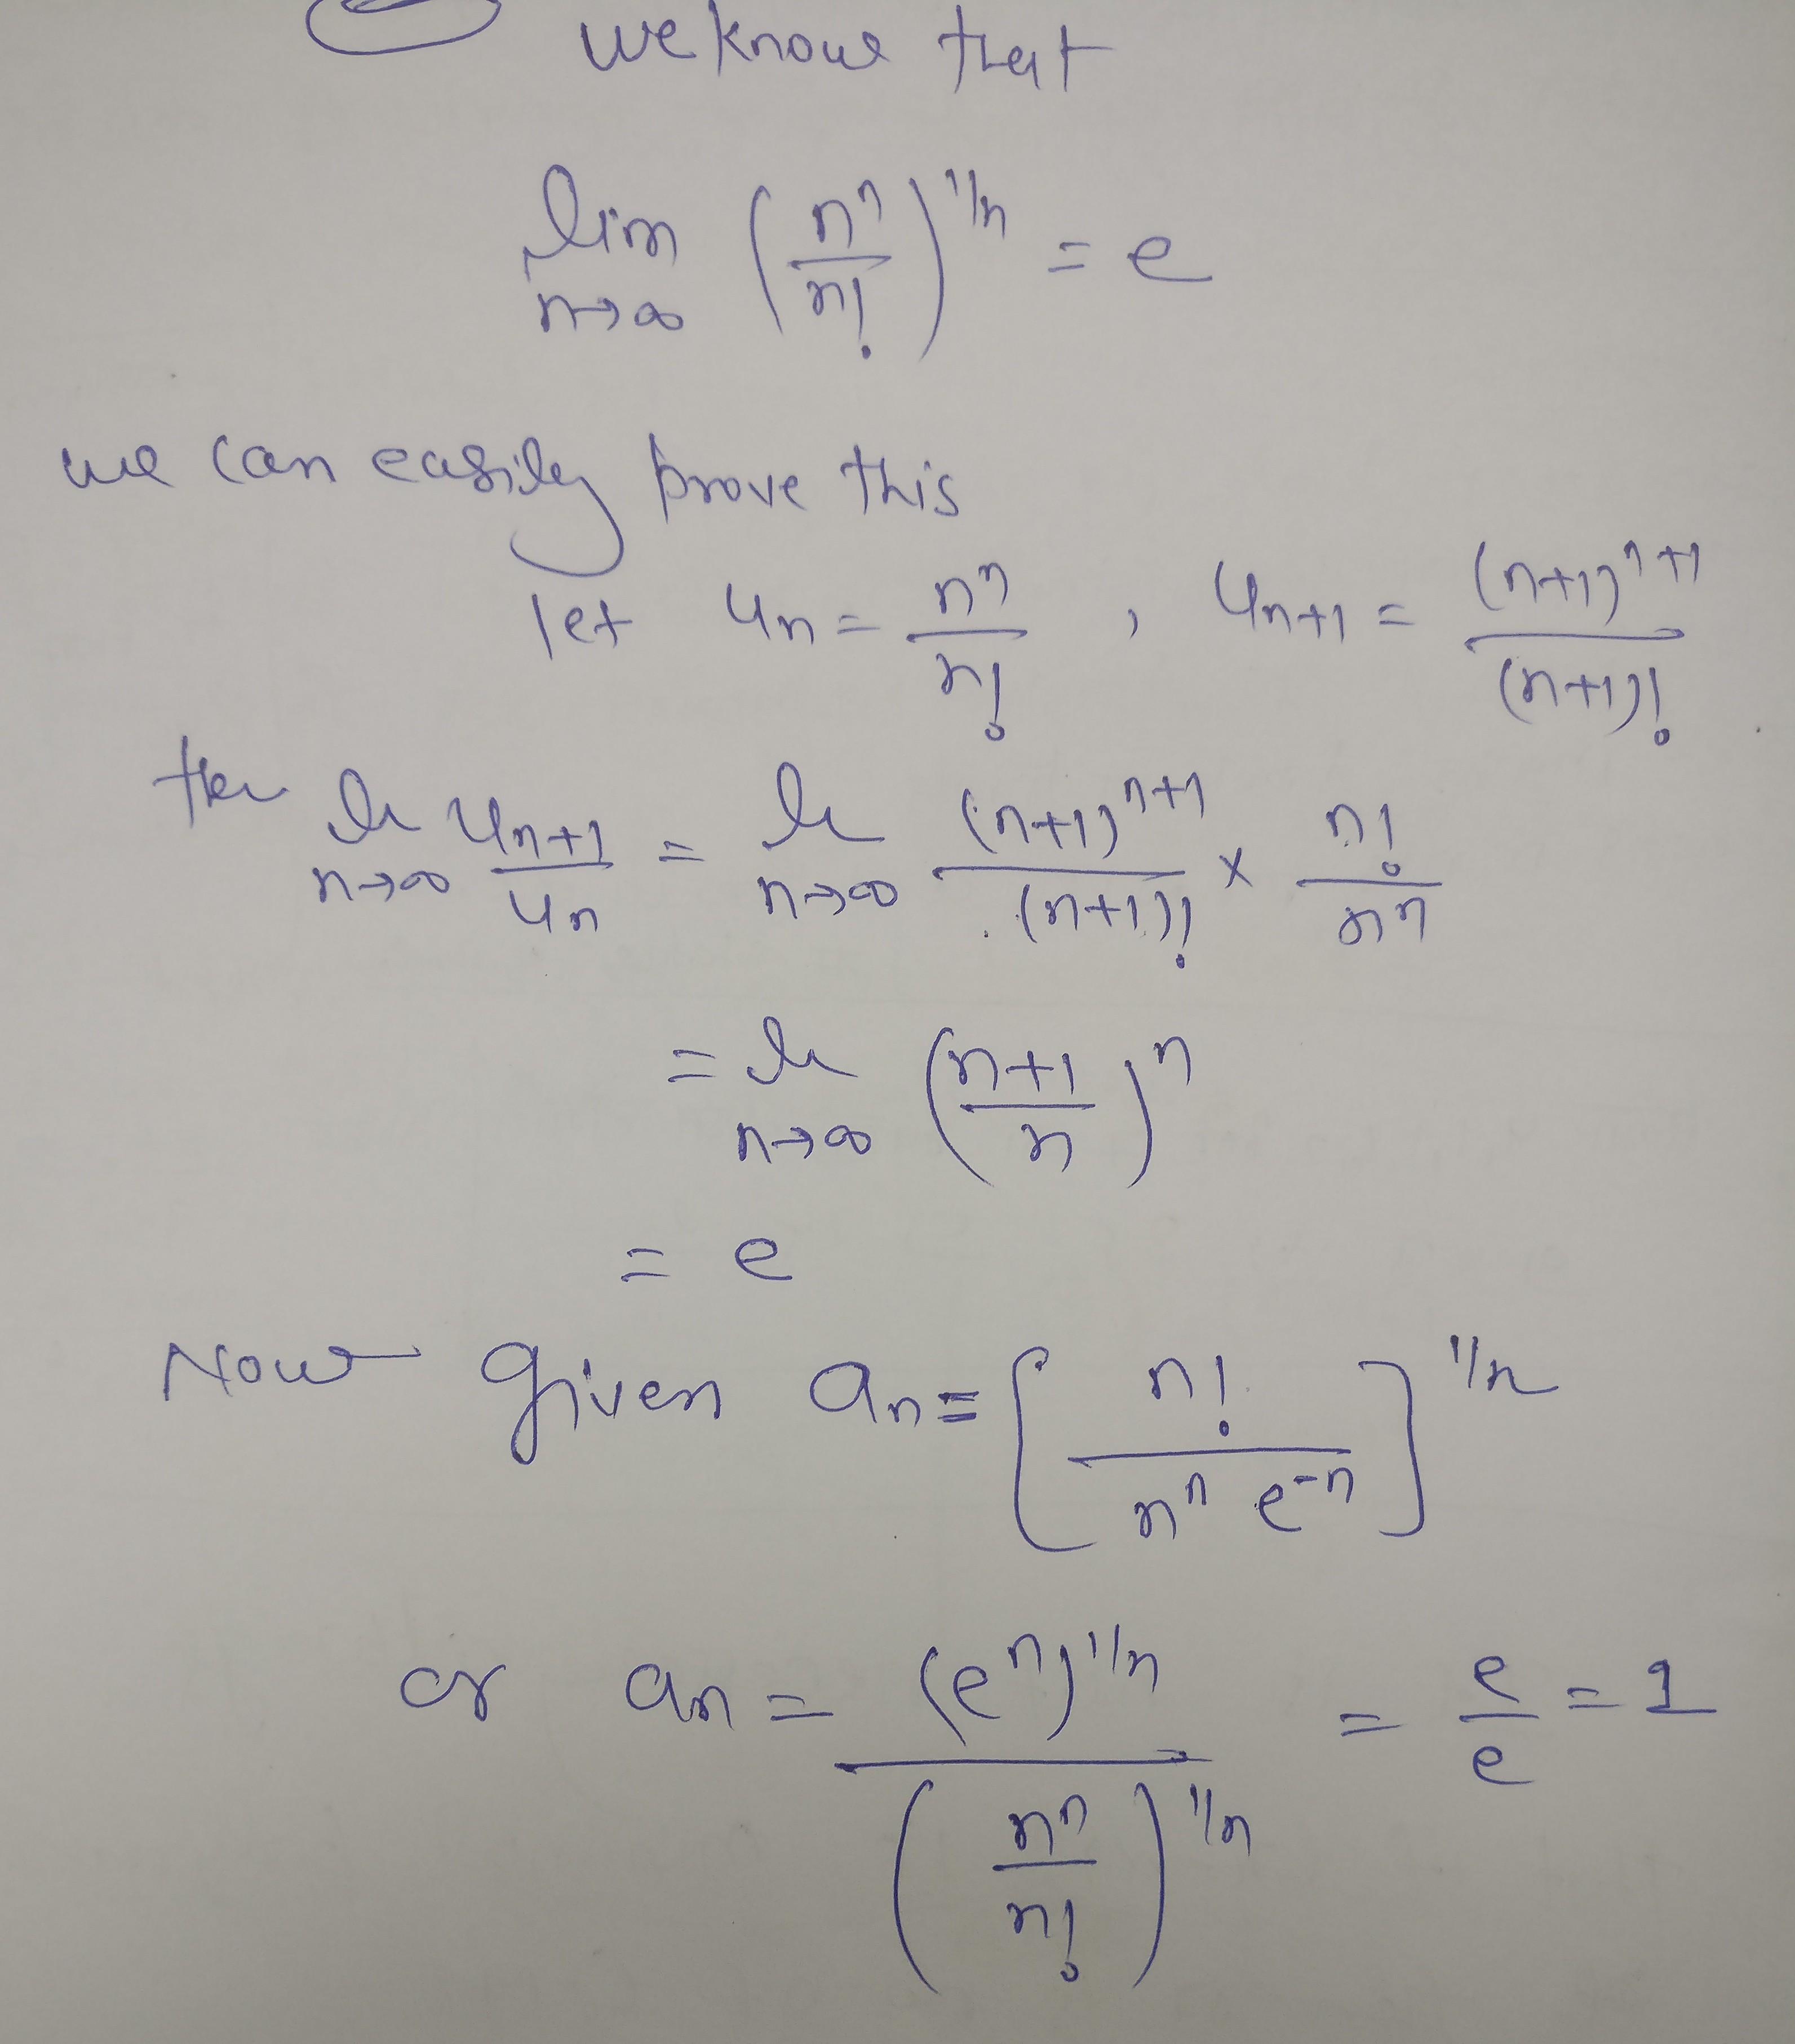 we know that
lim n→∞ (n^n / n!)^1/n = e
we can easily prove this
let u_n = n^n / n! , u_n+1 = (n+1)^n+1 / (n+1)!
then lim n→∞ u_n+1 / u_n = lim n→∞ (n+1)^n+1 / (n+1)! × n! / n^n
= lim n→∞ (n+1 / n)^n
= e
Now given a_n = [n! / n^n e^-n]^1/n
or a_n = (e^n)^1/n / (n^n / n!)^1/n = e/e = 1